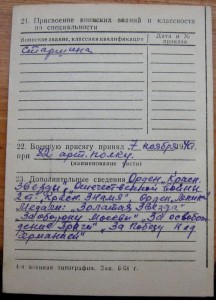 21. Присвоение воинских званий и классности
по специальности
Воинское звание, классная квалификация
Дата и №
приказа
Старшина
22. Военную присягу принял 7 ноября
при 82 арт. полку.
(наименование части)
23. Дополнительные сведения Орден Красн.
Звезды, Отечественной войны
2 ст. "Красн. Знамя", Орден Ленина
Медали: "Золотая Звезда"
"За оборону Москвы", "За освобож
дение Праги", "За победу над
Германией"
4-я военная типография. Зак.